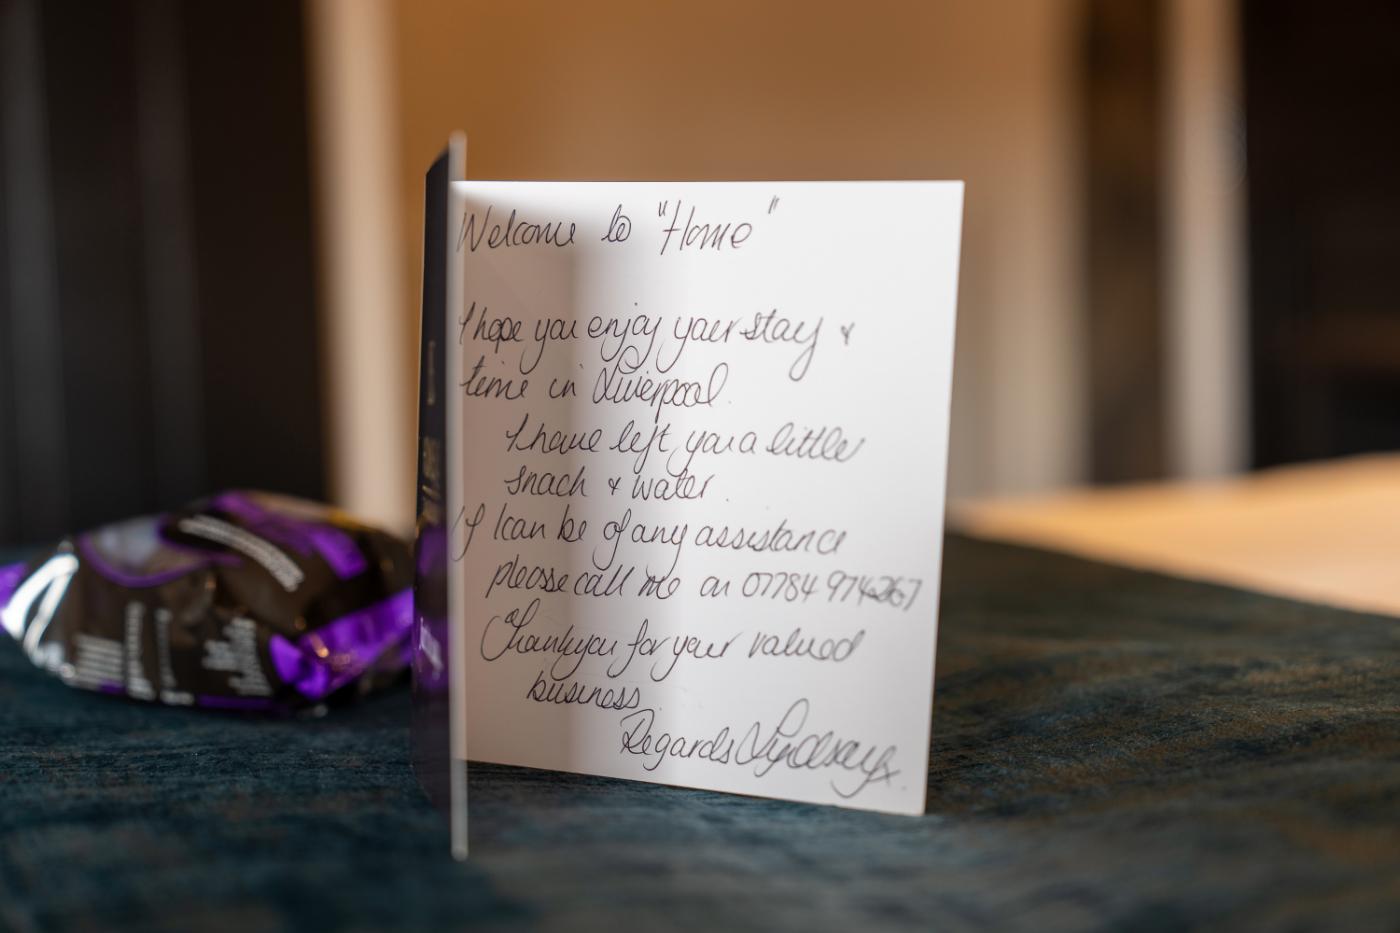 Welcome to "Home"
I hope you enjoy your stay &
time in Liverpool.
I have left you a little
snack & water.
If I can be of any assistance
please call me on 07784 974267
Thankyou for your valued
business.
Regards Lyndsay x.